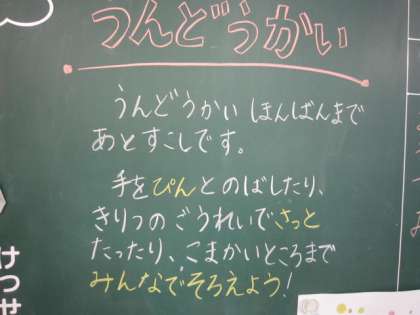 うんどうかい
うんどうかい ほんばんまで
あとすこしです。
手をぴんとのばしたり、
きりつのごうれいでさっと
たったり、こまかいところまで
みんなでそろえよう!
けつせ